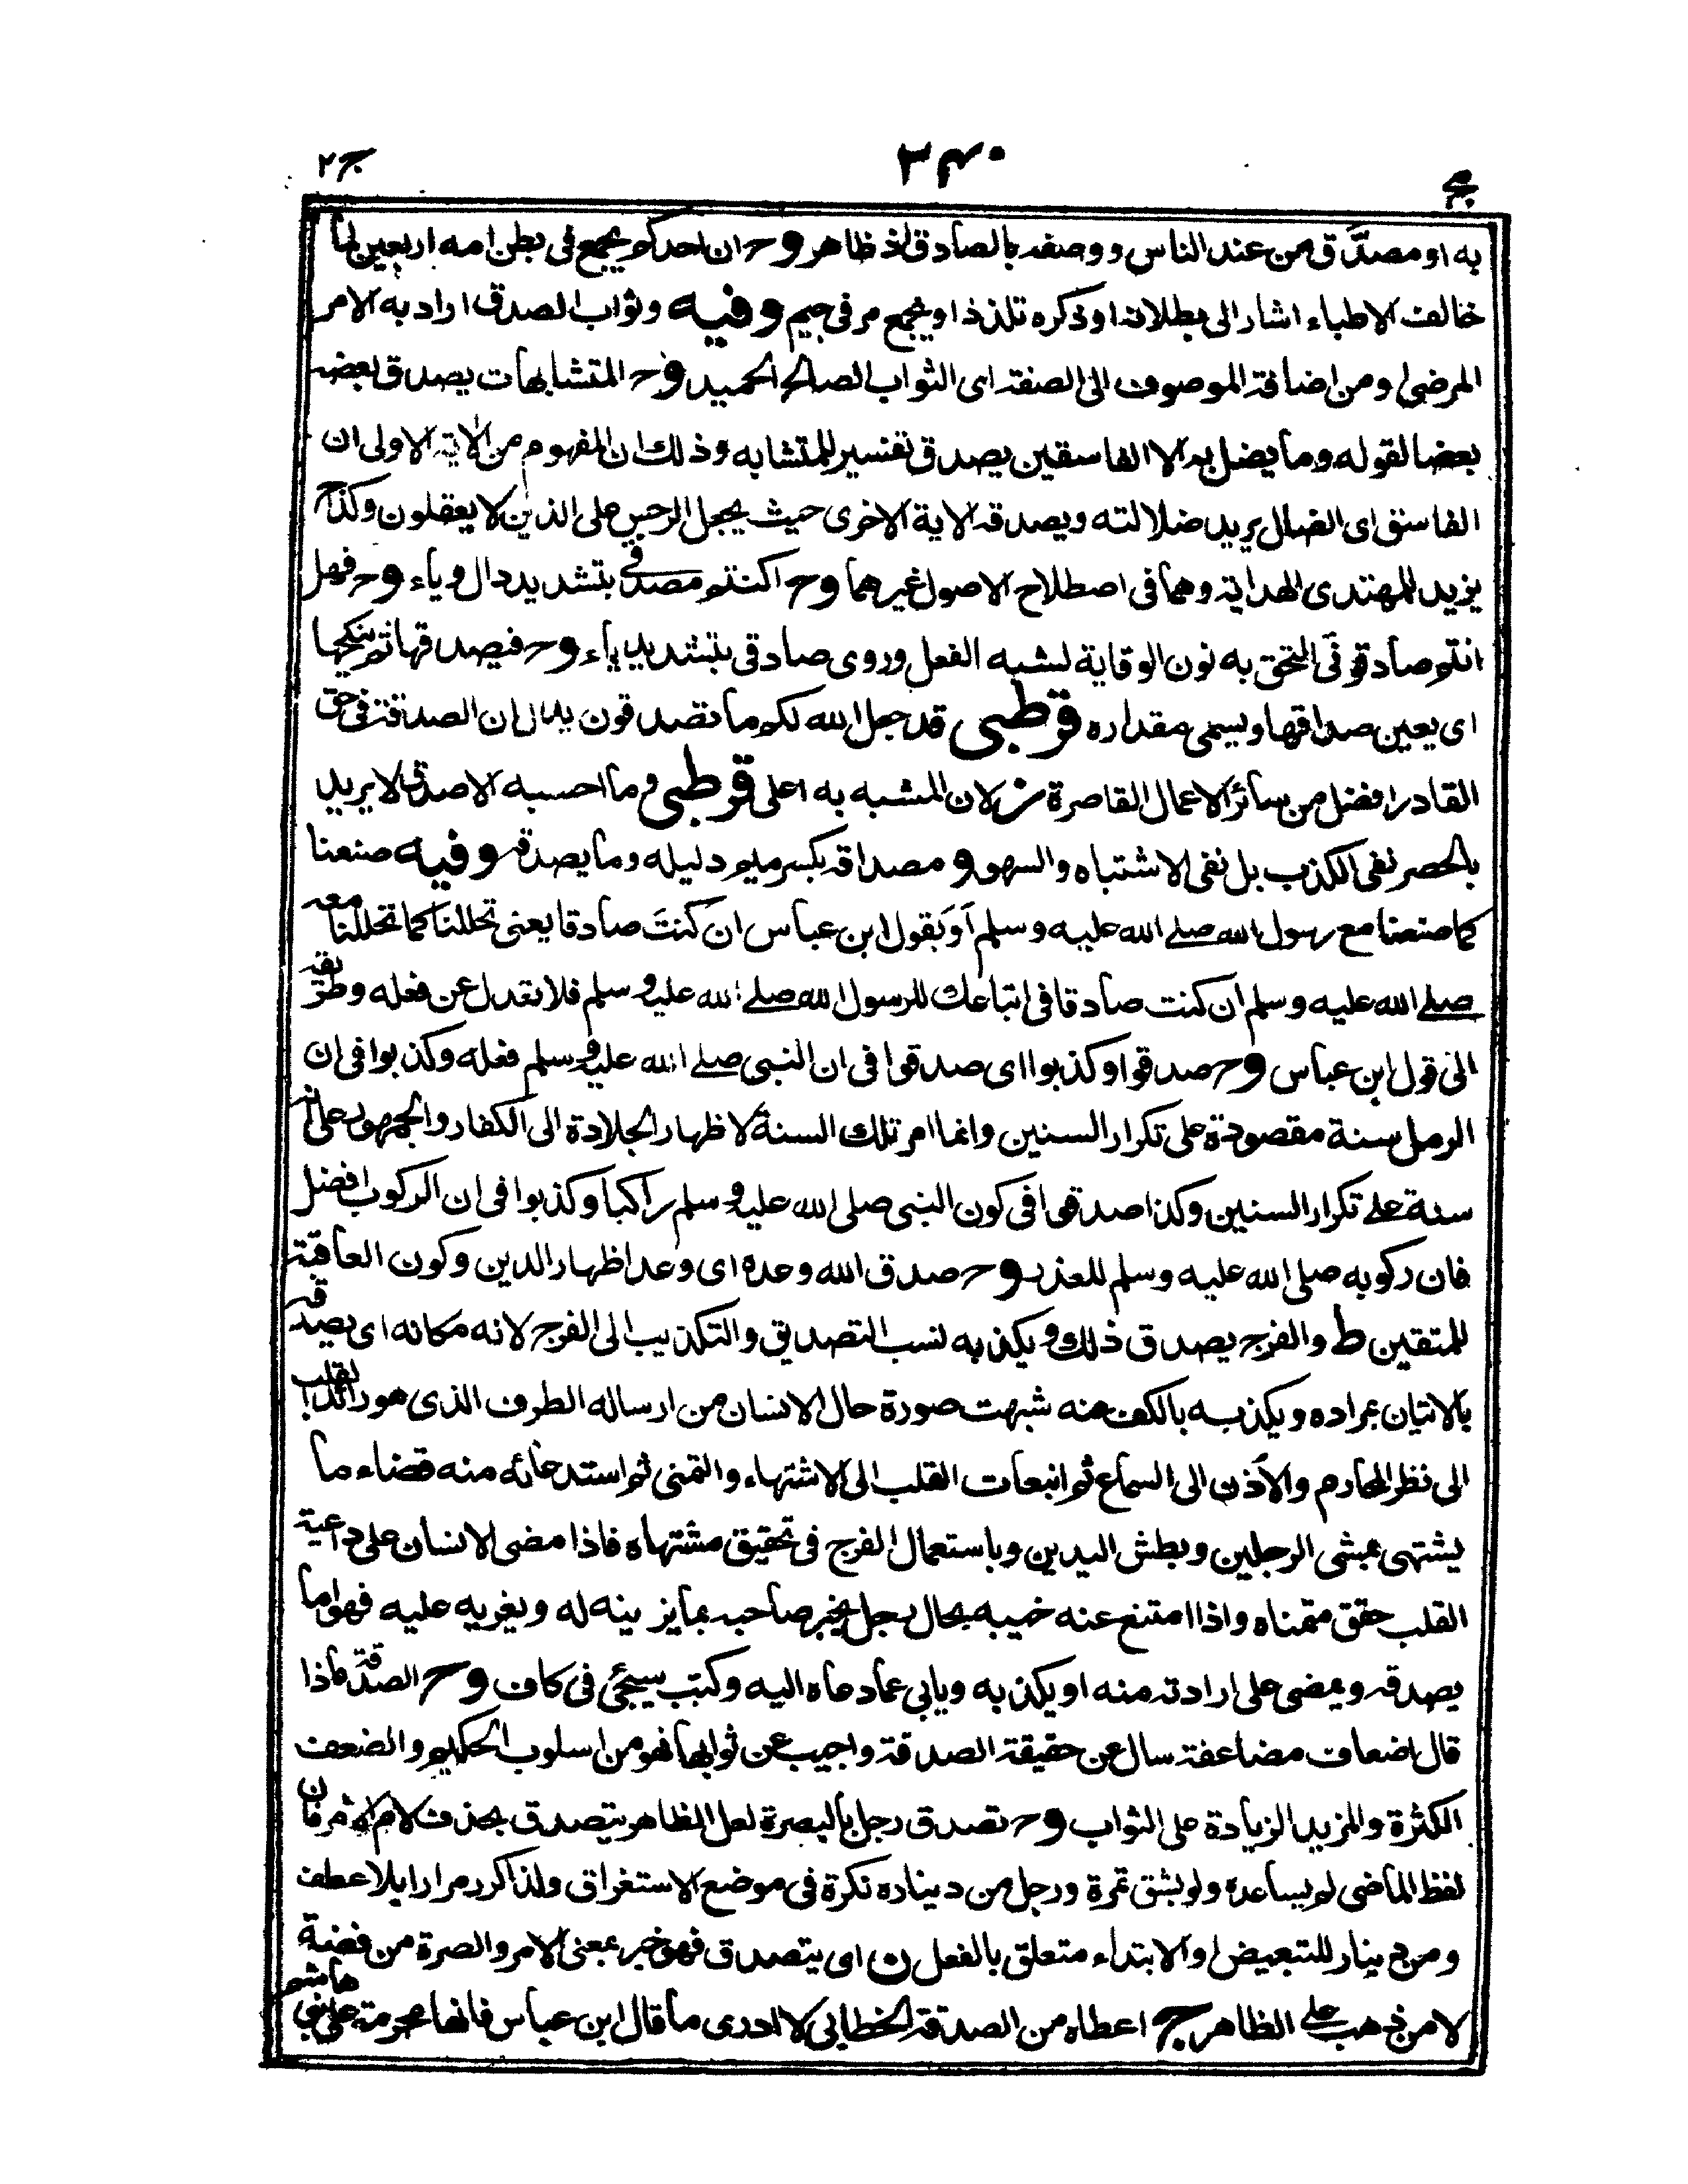 ج ٢ ٢٤٠ مج
به او مصدَّق من عند الناس ووصفه بالصادق اذ ظاهر وح ان احدكم يجمع فى بطن امه اربعين لما
خالف الاطباء اشار الى بطلانه او ذكره تلذذا ويجمع مر فى جيم وفيه وثواب الصدق اراد به الامر
المرضى او من اضافة الموصوف الى الصفة اى الثواب الصالح الحميد وح المتشابهات يصدق بعضه
بعضا لقوله وما يضل به الا الفاسقين يصدق تفسير للمتشابه وذلك ان المفهوم من الاية الاولى ان
الفاسق اى الضال يريد ضلالته ويصدقه الاية الاخرى حيث يجعل الرجس على الذين لا يعقلون وكذا ح
يزيد للمهتدى الهداية وهما فى اصطلاح الاصول غيرهما وح اكنتم مصدقى بتشديد دال وياء وح فهل
انتم صادقونى المتحق به نون الوقاية لشبه الفعل وروى صادقى بتشديد ياء وح فيصدقها ثم ينكحها
اى يعين صداقها ويسمى مقداره قرطبى قد جعل الله لكم ما تصدقون يدل ان الصدقة فى حق
القادر افضل من سائر الاعمال القاصرة ز لان المشبه به اعلى قرطبى وما احسبه الا صدق لا يريد
بالحصر نفى الكذب بل نفى الاشتباه والسهو و مصداقه بكسر ميم دليله وما يصدقه وفيه صنعنا
كما صنعنا مع رسول الله صلے الله عليه وسلم اَوَ بقول ابن عباس ان كنتَ صادقا يعنى تحللنا كما تحللنا معه
صلے الله عليه وسلم ان كنت صادقا فى اتباعك للرسول الله صلے الله عليه وسلم فلا تعدل عن فعله وطريقه
الى قول ابن عباس وح صدقوا وكذبوا اى صدقوا فى ان النبى صلے الله عليه وسلم فعله وكذبوا فى ان
الرمل سنة مقصودة على تكرار السنين وانما امر تلك السنة لاظهار الجلادة الى الكفار والجمهور على انه
سنة علے تكرار السنين وكذا صدقوا فى كون النبى صلى الله عليه وسلم راكبا وكذبوا فى ان الركوب افضل
فان ركوبه صلى الله عليه وسلم للعذر وح صدق الله وعده اى وعد اظهار الدين وكون العاقبة
للمتقين ط والفرج يصدق ذلك ويكذبه نسب التصديق والتكذيب الى الفرج لانه مكانه اى يصدقه
بالاتيان بمراده ويكذبه بالكف منه شبهت صورة حال الانسان من ارساله الطرف الذى هو رائد القلب
الى نظر المحارم والاُذن الى السماع ثم انبعاث القلب الى الاشتهاء والتمنى ثم استدعائه منه قضاء ما
يشتهى بمشى الرجلين وبطش اليدين وباستعمال الفرج فى تحقيق مشتهاه فاذا مضى الانسان على داعية
القلب حقق متمناه واذا امتنع عنه خيبه بحال رجل يخبر صاحبه بما يزينه له ويغريه عليه فهو اما
يصدقه ويمضى على ارادته منه او يكذبه ويابى عما دعاه اليه وكتب سيجئ فى كاف وح الصدقة ماذا
قال اضعاف مضاعفة سال عن حقيقة الصدقة واجيب عن ثوابها فهو من اسلوب الحكيم والضعف
الكثرة والمزيد الزيادة على الثواب وح تصدق رجل بالبصرة لعل الظاهر يتصدق بحذف لام الامر فان
لفظ الماضى لم يساعده ولو بشق تمرة ورجل من ديناره نكرة فى موضع الاستغراق ولذا كرر مرارا بلا عطف
ومن دينار للتبعيض او الابتداء متعلق بالفعل ن اى يتصدق فهو خبر بمعنى الامر والصرة من فضة
لا من ذهب علے الظاهر ج اعطاه من الصدقة الخطابى لا ادرى ما قال ابن عباس فانها محرمة على بنى هاشم